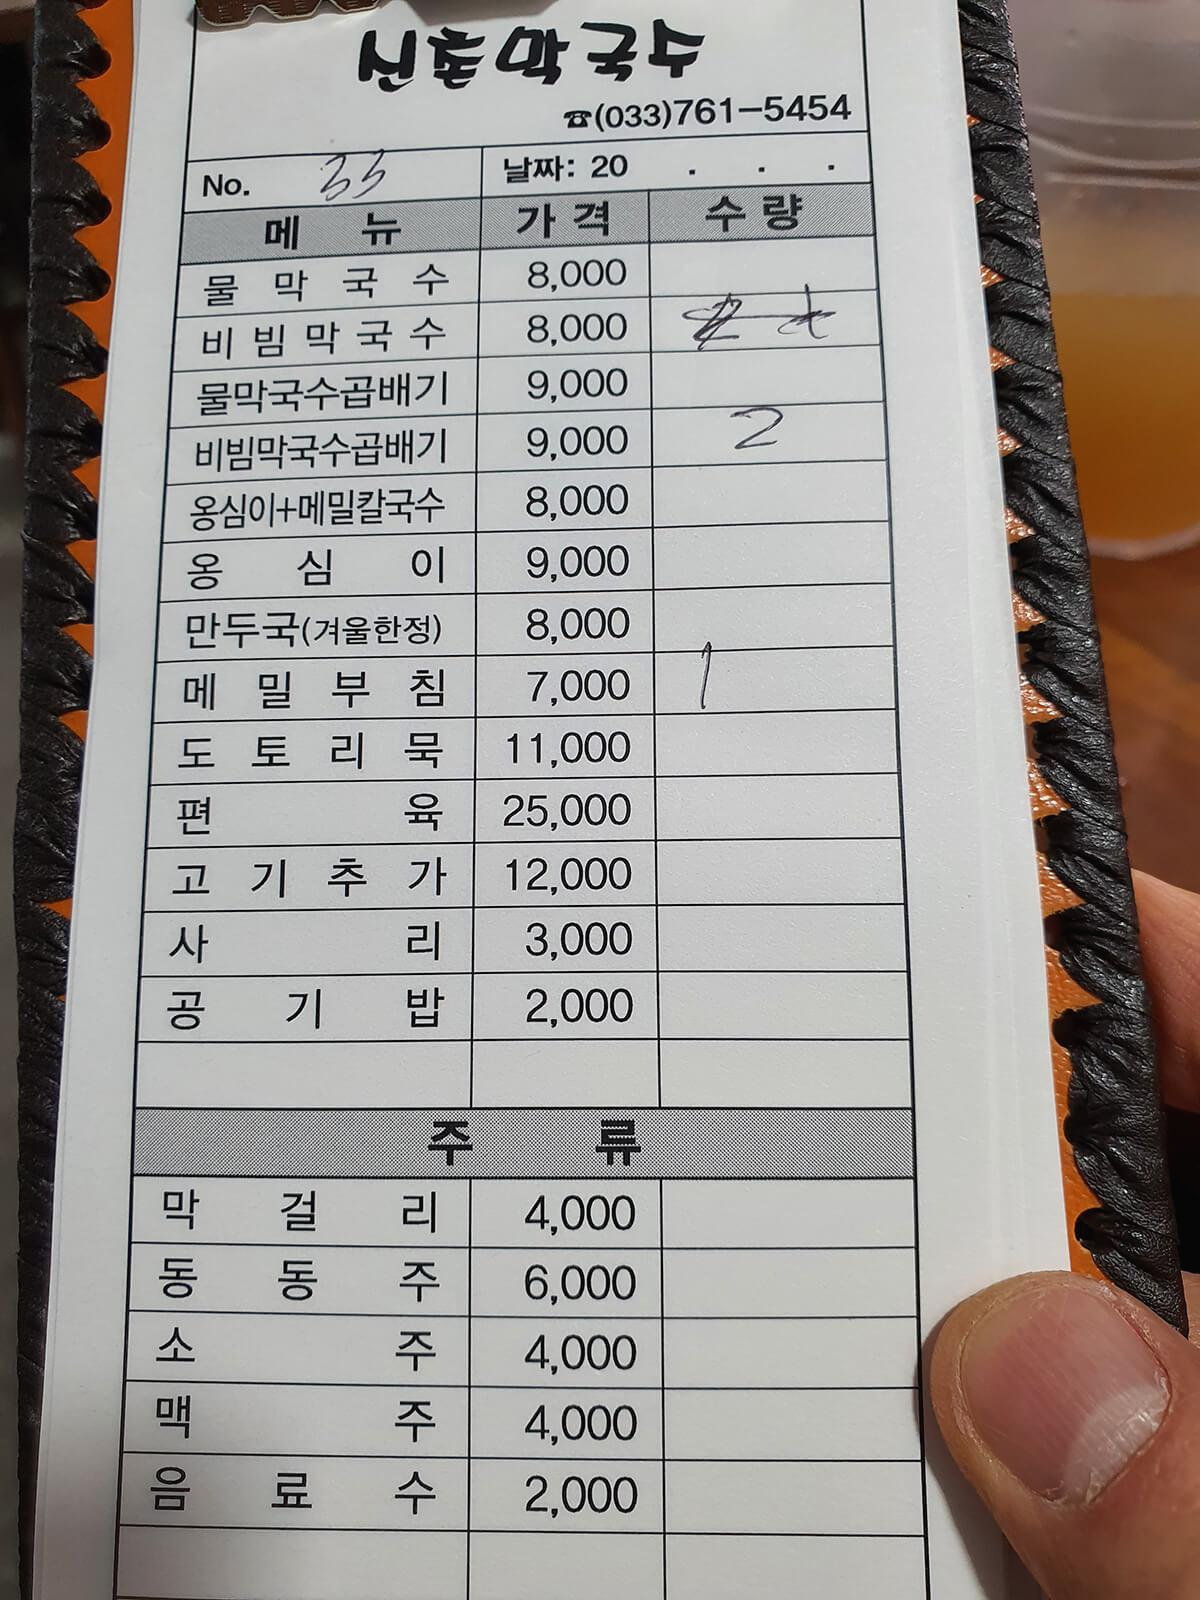 신촌막국수
☎(033)761-5454
No. 33 날짜: 20 . . .
메 뉴 가 격 수 량
물 막 국 수 8,000
비 빔 막 국 수 8,000
물막국수곱배기 9,000
비빔막국수곱배기 9,000 2
옹심이+메밀칼국수 8,000
옹 심 이 9,000
만두국(겨울한정) 8,000
메 밀 부 침 7,000 1
도 토 리 묵 11,000
편 육 25,000
고 기 추 가 12,000
사 리 3,000
공 기 밥 2,000
주 류
막 걸 리 4,000
동 동 주 6,000
소 주 4,000
맥 주 4,000
음 료 수 2,000